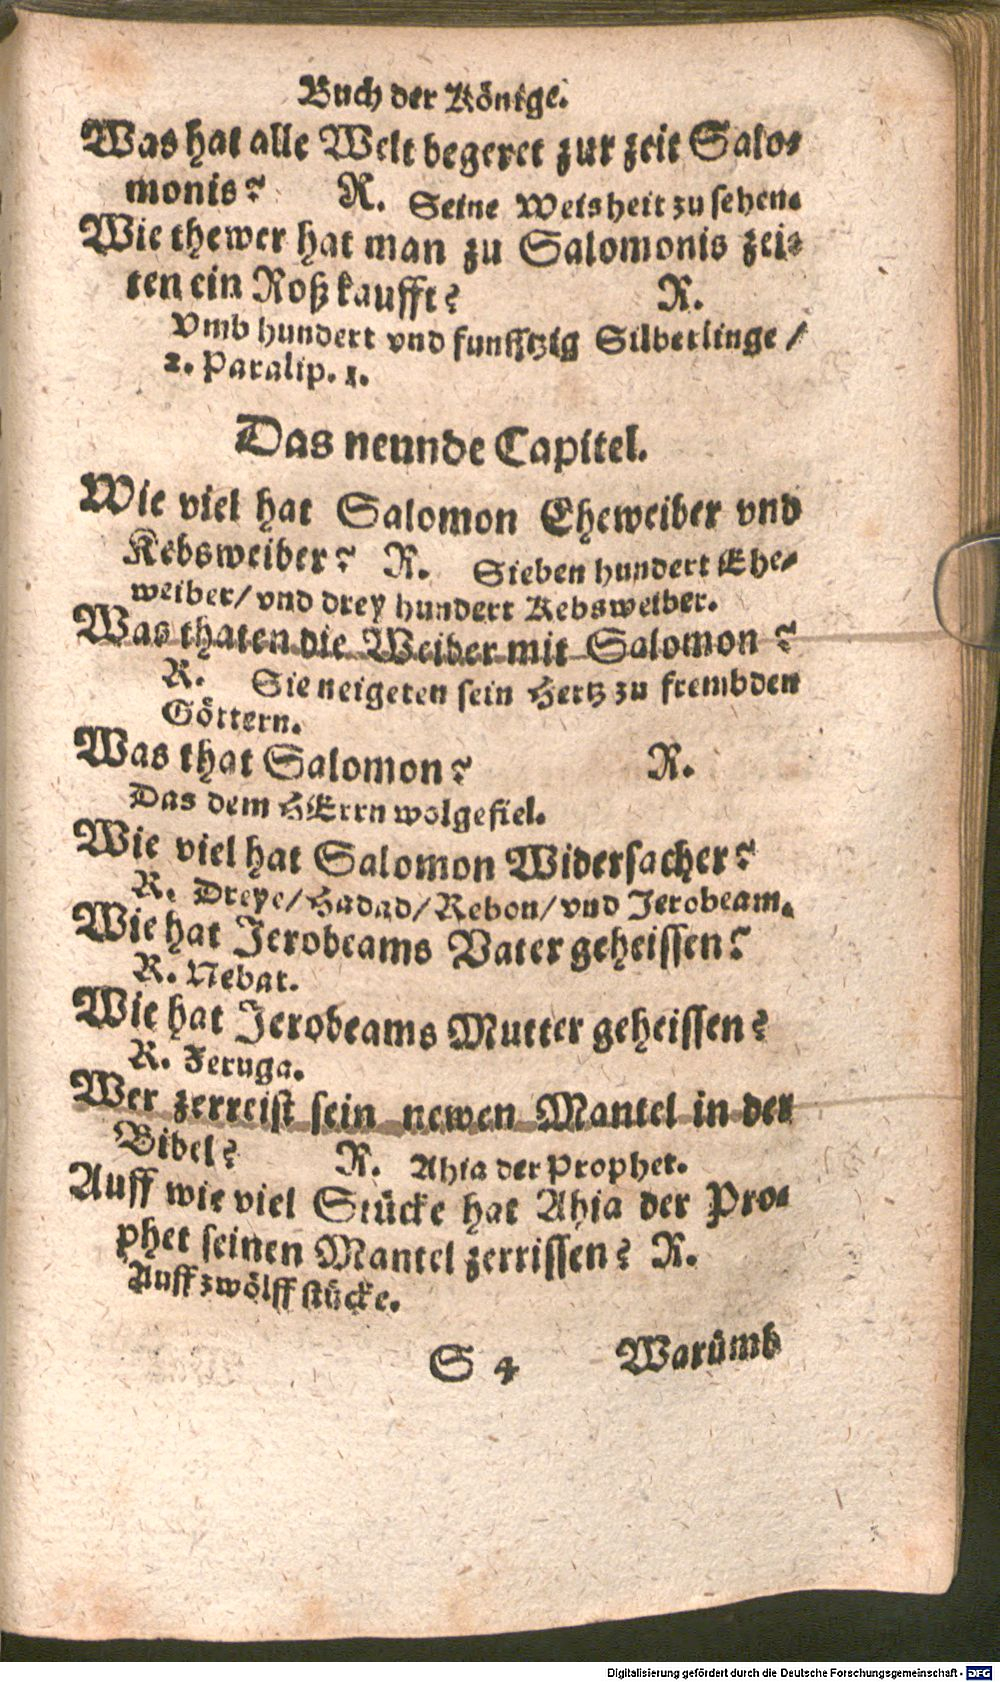 Buch der Könige.
Was hat alle Welt begeret zur zeit Salo-
monis? R. Seine Weisheit zu sehen.
Wie thewer hat man zu Salomonis zei-
ten ein Roß kaufft? R.
Vmb hundert vnd funfftzig Silberlinge /
2. Paralip. 1.
Das neunde Capitel.
Wie viel hat Salomon Eheweiber vnd
Kebsweiber? R. Sieben hundert Ehe-
weiber/ vnd drey hundert Kebsweiber.
Was thaten die Weiber mit Salomon?
R. Sie neigeten sein Hertz zu frembden
Göttern.
Was that Salomon? R.
Das dem HErrn wolgefiel.
Wie viel hat Salomon Widersacher?
R. Dreye/ Hadad/ Rebon/ vnd Jerobeam.
Wie hat Jerobeams Vater geheissen?
R. Nebat.
Wie hat Jerobeams Mutter geheissen?
R. Feruga.
Wer zerreist sein newen Mantel in der
Bibel? R. Ahia der Prophet.
Auff wie viel Stücke hat Ahia der Pro-
phet seinen Mantel zerrissen? R.
Auff zwölff stücke.
S 4 Warümb
Digitalisierung gefördert durch die Deutsche Forschungsgemeinschaft - DFG